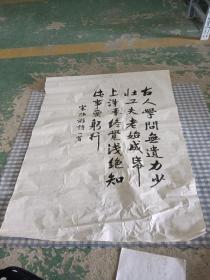 古人學問無遺力少
壮工夫老始成紙
上得来終覺浅絶知
此事要躬行
宋陸游詩一首